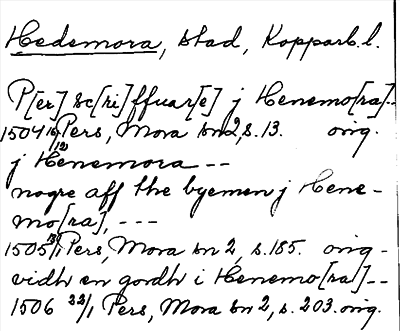 Hedemora, stad, Kopparb. l.
P[er] sc[ri]ffuar[e] j Henemo[ra]--
1504 16/12 Pers, Mora sn 2, s. 13. orig.
j Henemora ---
nogre aff the byemen j Hene-
mo[ra], ---
1505 /1 Pers, Mora sn 2, s. 185. orig.
vidh en godh i Henemo[ra]--
1506 22/1 Pers, Mora sn 2, s. 203. orig.